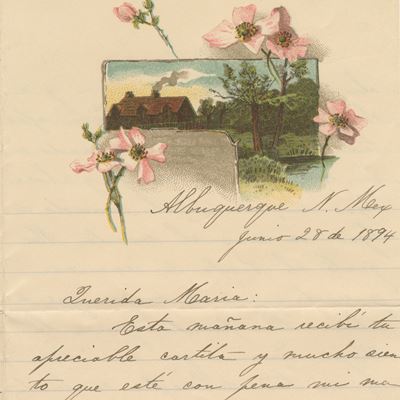 Albuquerque N. Mex
Junio 28 de 1894
Querida Maria:
Esta mañana recibí tu
apreciable cartita y mucho sien
to que esté con pena mi ma